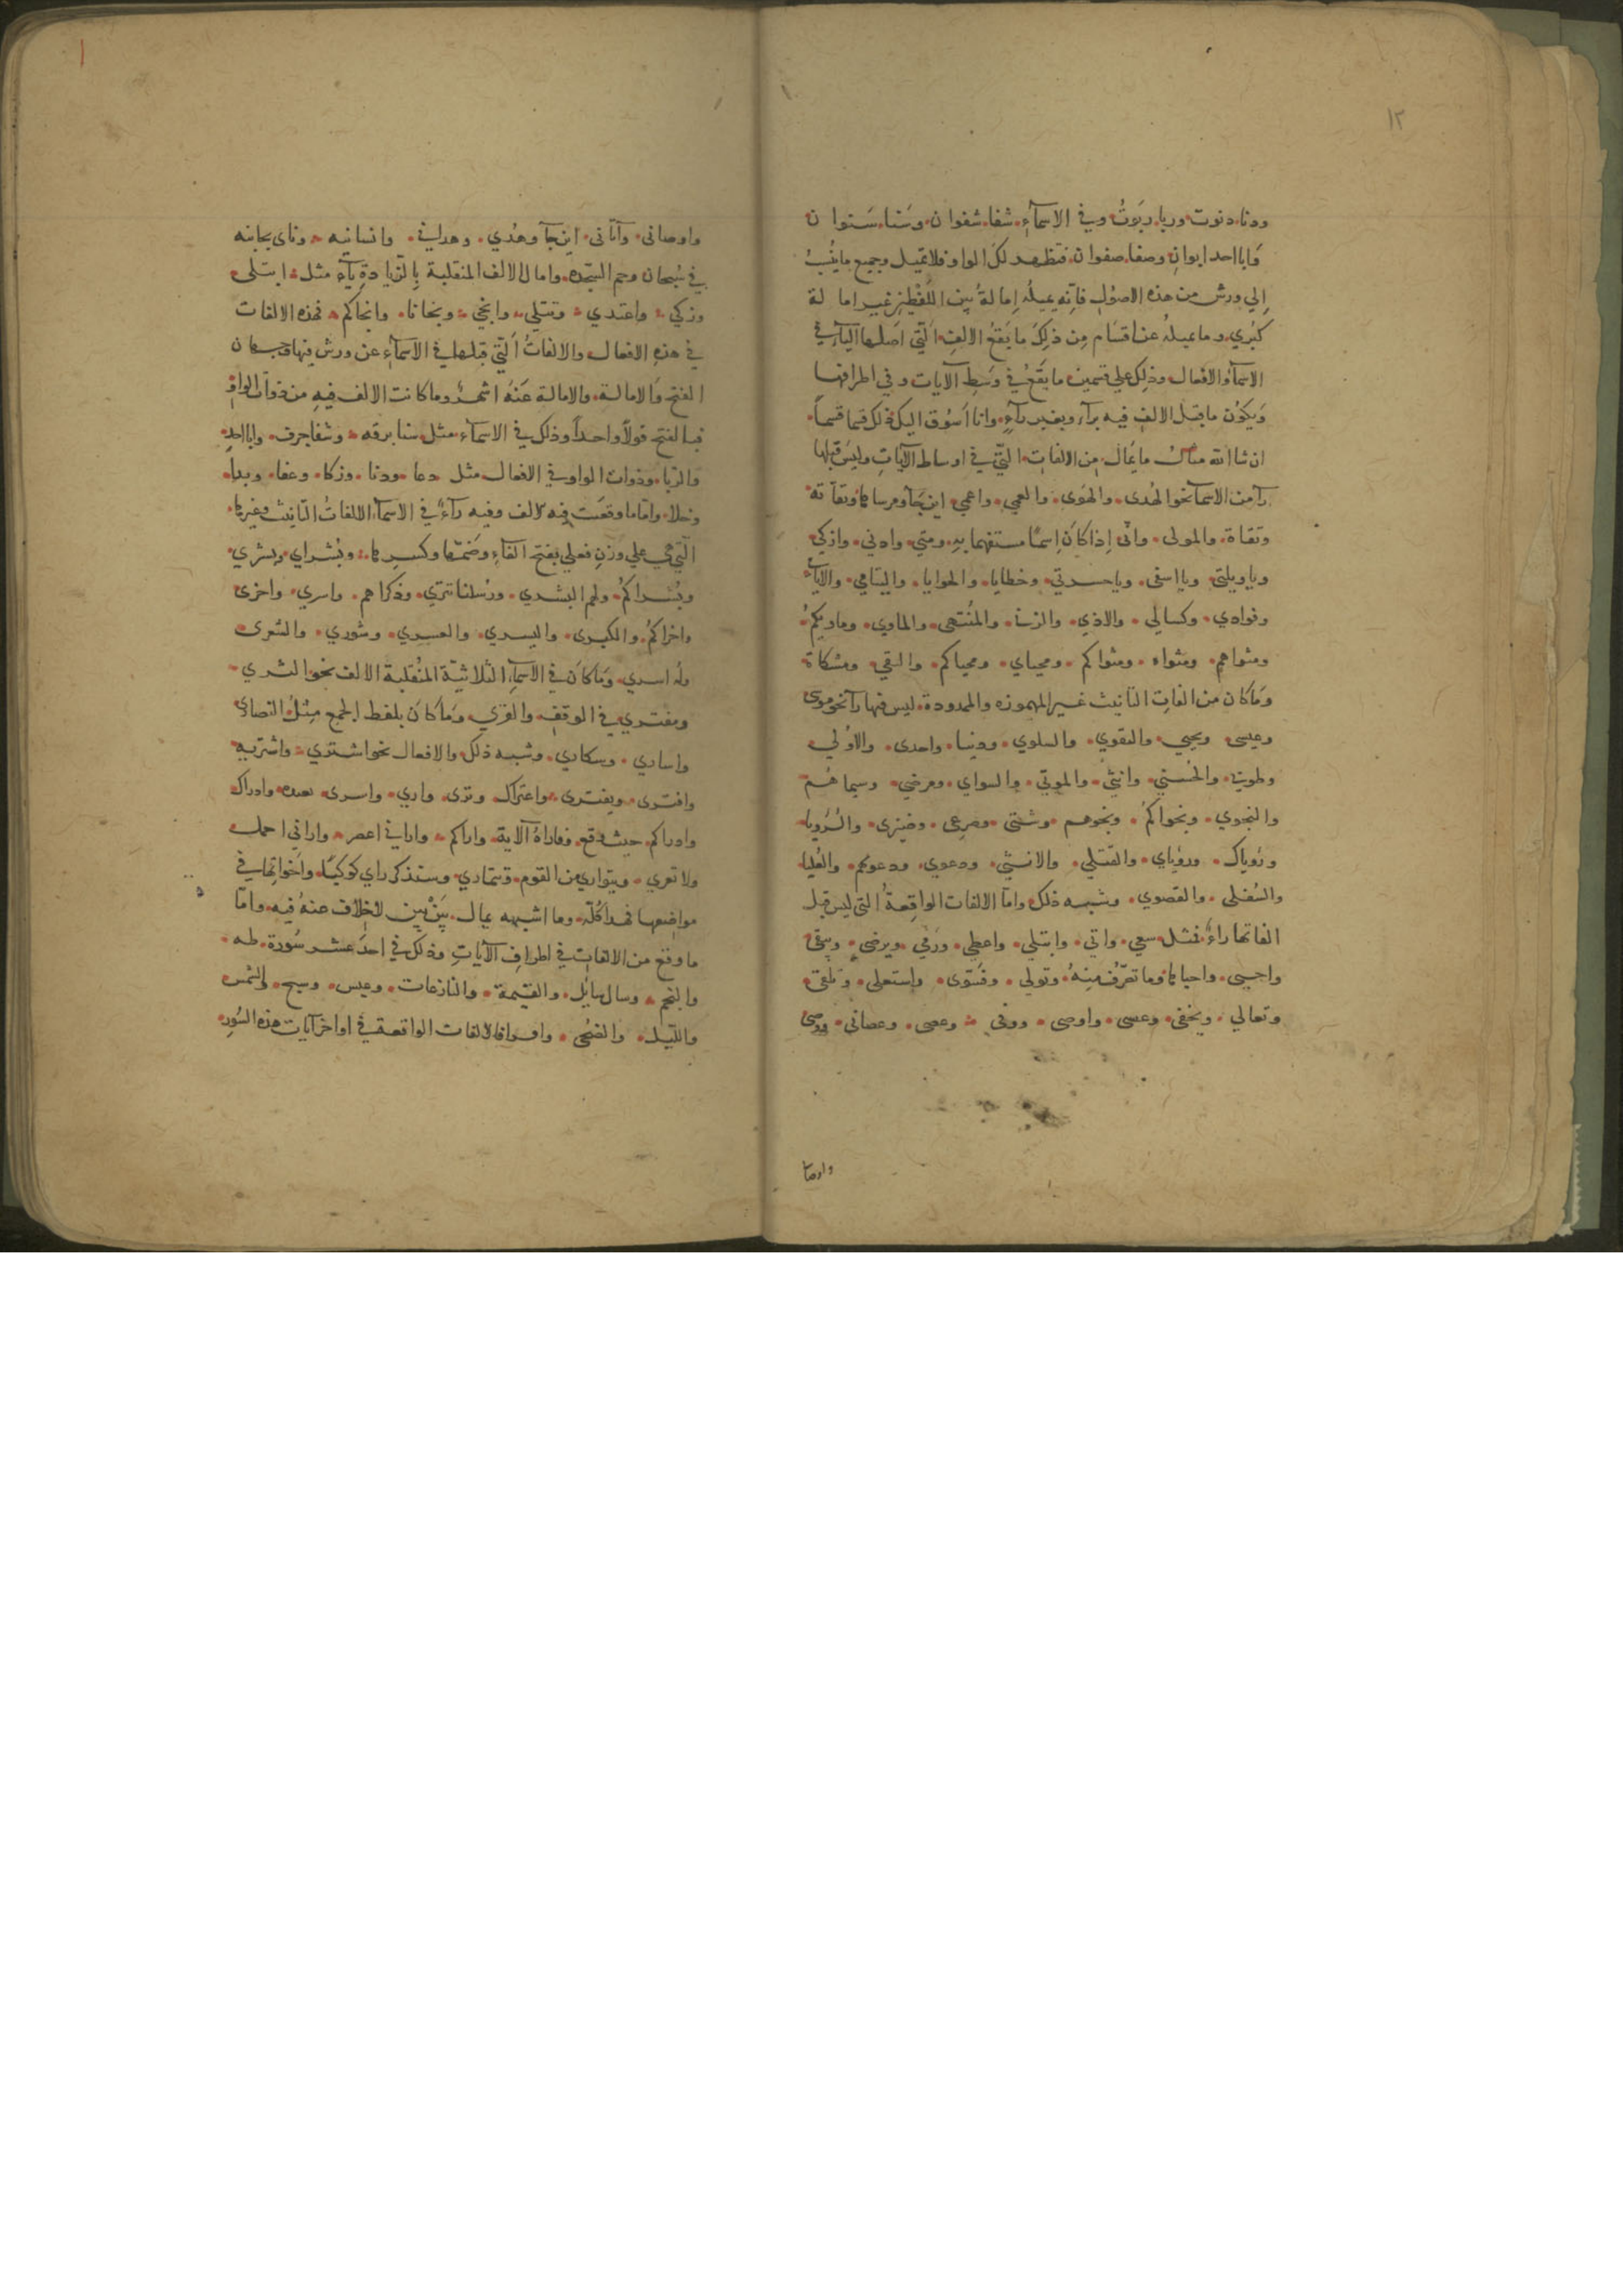 ١٢
ودنا، دنوت وربا، ربوتُ وفي الاسمآءِ، شفا، شفوان، وسَنا، سَنوان
وَابا احد ابوانِ وصفا، صفوان، فتظهر لكَ الواو فلا تميل وجميع ما ينُسبُ
اِلي ورش من هذه الاصوُل فاِنّه يميلُه اِمالةً بين اللّفْظين غير امالة
كبُري، وما يميلهُ عنا قسَام مِن ذلِكَ ما يَقعُ الالفِ الّتي اَصلها اليآء في
الاسمآءَ والافعال وذلِكَ علي قسمين ما يقَعُ في وسَطِ الآيات وفي اطرافها
وَيَكوُن ما قبل الالفِ فيه برآء وبغير رآءٍ، وانا اسُوق اليك ذلك قسما قسماً
ان شا الله مثال ما يُمال من الالفاتِ الّتي في اوساط الآيَاتِ وليسَ قبلها
رآ من الاسمآ نحو الهُدى، والهَوى، والعمي، واعمي، اين جَآ ومرساها وتقآته
وتقاة، والمولى، وانّى اِذا كاَنَ اِسمًا مستفهما بهِ، ومتي، وادني، وازكي
وياويلتي، ويااسفى، وياحسرتي، وخطايا، والحوايا، واليتامي، والايامي
وفرادي، وكسالي، والاذي، والزنا، والمُنتهى، والماوي، وماويكمُ
ومثواهم، ومثواه، ومثواكم، ومحياي، ومحياكم، والتقي، ومشكاة
وَمَا كان من الفاتِ التانيث غير المهموزه والممدودة، ليس فيها رآ نحو موسى
وعيسى، ويحيي، والتقوي، والسلوي، ودنيا، واحدى، والاوُلي
وطوبي، والحُسني، وانثي، والموتي، والسواي، ومرضي، وسيماهُم
والنجوي، ونجواكمُ، ونجوهم، وشتى، وصرعى، وضيزى، والرُويا
ورُوياك، ورؤياي، والقتلي، والانثي، ودعوي، ودعويهم، والعُليا
والسُفلى، والقصوي، وشبه ذلك، وامّا الالفات الواقِعةُ التي ليس قبل
الفاتها راءٌ، فمثل سعي، واتي، وابتلي، واعطي، ورَمي، ويرضي، ويبقى
واجتبى، واحياها وما تصرّفُ منِهُ، وتولي، وفسَوّى، واستعلي، وتلقى
وتعالي، ويخفى، وعسى، واوصى، ووفى، وعصى، وعصاني، ووصى
واوصا
واوصاني، وآتاني، اين جآ وهُدي، وهداني، وانسانيه، وناى بجانبه
في سُبحان وحم السّجده، وامال الالف المنقلبة بِالزّيادةِ يآء مثل، ابتلى
وزكي، واعتدي، وتتلي، وانجي، ونجانا، وانجاكم، فهذه الالفات
في هذهِ الافعال والالفاتُ الّتي قبلها في الاسمآءِ عن ورش فيها وجهان
الفتح وَالامالة، والامالة عَنهُ اشهرُ وما كانت الالف فيهِ من ذوات الواوِ
فبالفتح قولاً واحداً وذلك في الاسمآءِ مثل، سنا برقه، وشفا جرف، وابا احدٍ
والرّبا، وذوات الواو في الافعال مثل، دعا، ودنا، وزكا، وعفا، وبدا
وخلا، وامّا ما وقعَت فيه الالف وفيه رآءُ في الاسمآء الالفاتُ التانيث وغيرها
الّتي هي علي وزنِ فعلي بفتح الفآءِ وضَمّها وكسرِها، وبُشراي، وبشري
وبُشراكمُ، ولهم البُشري، ورُسلنا تتري، وذكراهم، واسري، واخرى
واخراكمُ، والكبرى، واليسري، والعسري، وشوري، والشعرى
وله اسري، وَما كانَ في الاسمآءِ الثلاثيّة المُنقلبة الالف نحو الثري
ومفتري في الوقفِ، والقري، وَما كانَ بلفظ الجمع مِثلُ النصاري
واساري، وسكاري، وشبه ذلك والافعال نحو اشتري، واشتريه
وافترى، ويفترى، واعتراك، وترى، واري، واسرى بعبده، وادراك
وادراكم، حيث وقع، وفاراهُ الآية، واراكم، واراني اعصر، واراني احمل
ولا تعري، ويتواري من القوم، وتتماري، وستذكر راي كوكبًا، واخواتها في
مواضعها فهذا كلّه وما اشبهه يمال، بَيْن بَيِن لاخلاف عنهُ فيه، وامّا
ما وقع من الالفات في اطرافِ الآياتِ وذلك في احدَ عشر سُورة، طه
والنجم، وسال سايل، والقيمة، والنازعات، وعبس، وسبح، والشمس
والليل، والضحى، واقرا فالالفات الواقعة في اواخر آيات هذه السُورِ